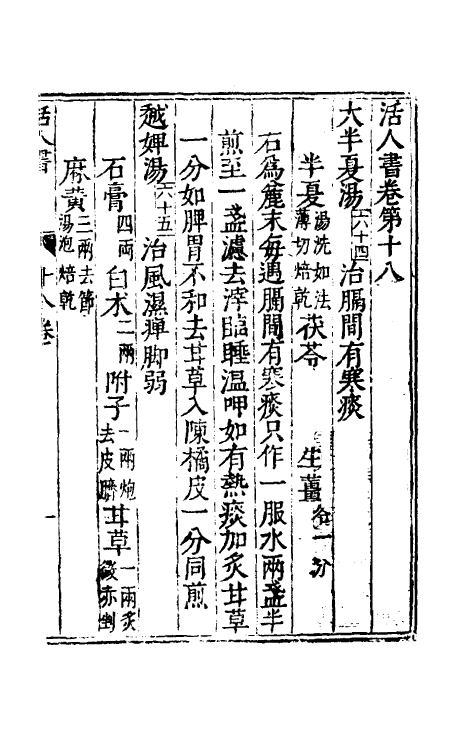 活人書卷第十八
大半夏湯六十四治膈間有寒痰
半夏湯洗如法薄切焙乾茯苓生薑各一分
右為麄末每遇膈間有寒痰只作一服水兩盞半
煎至一盞濾去滓臨睡溫呷如有熱痰加炙甘草
一分如脾胃不和去甘草入陳橘皮一分同煎
越婢湯六十五治風濕痺脚弱
石膏四兩白朮二兩附子一兩炮去皮臍甘草一兩炙
麻黃三兩去節湯泡焙乾
活人書 十八卷 一